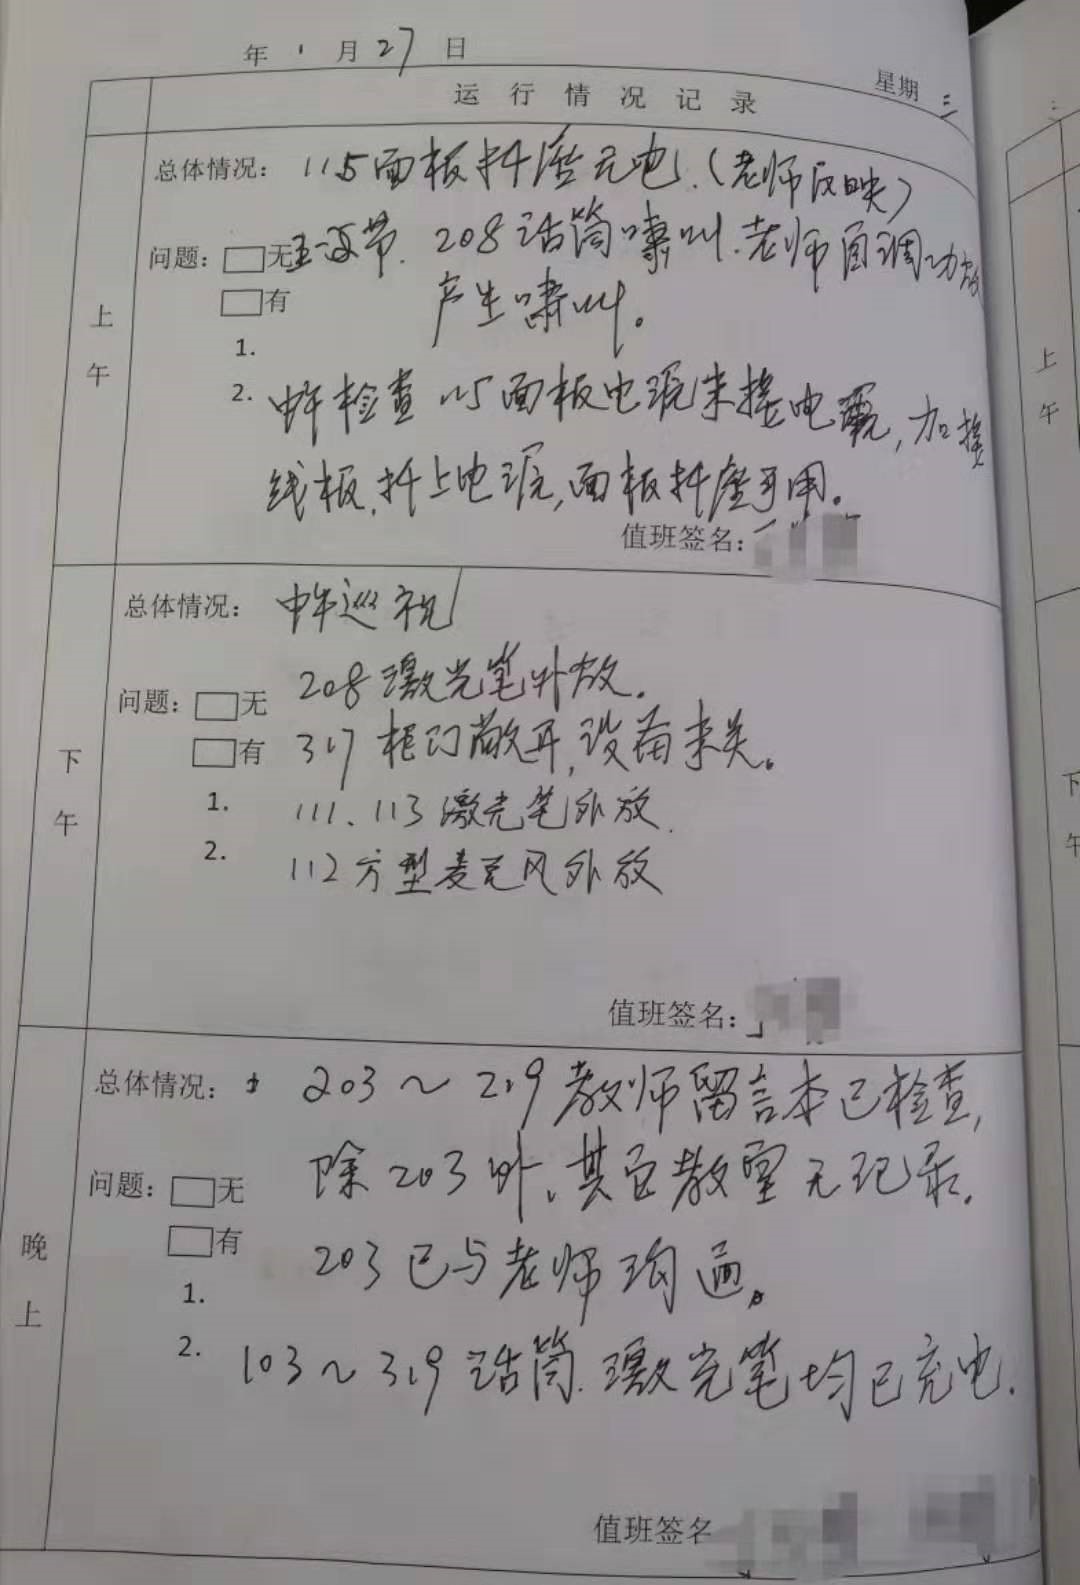 年 1 月 27 日
星期 三
运行情况记录
上午
总体情况: 115面板插座无电.(老师反映)
问题: 无 五,六节. 208话筒啸叫.老师自调功放
有 产生啸叫。
1.
2. 中午检查115面板电源未接电源,加接
线板,插上电源,面板插座可用。
值班签名:
下午
总体情况: 中午巡视
问题: 无 208激光笔外放.
有 317柜门敞开,设备未关。
1. 111、113激光笔外放.
2. 112方型麦克风外放
值班签名:
晚上
总体情况: 203~219教师留言本已检查,
问题: 无 除203外、其它教室无记录.
有 203已与老师沟通。
1.
2. 103~319话筒.激光笔均已充电.
值班签名
上午
下午